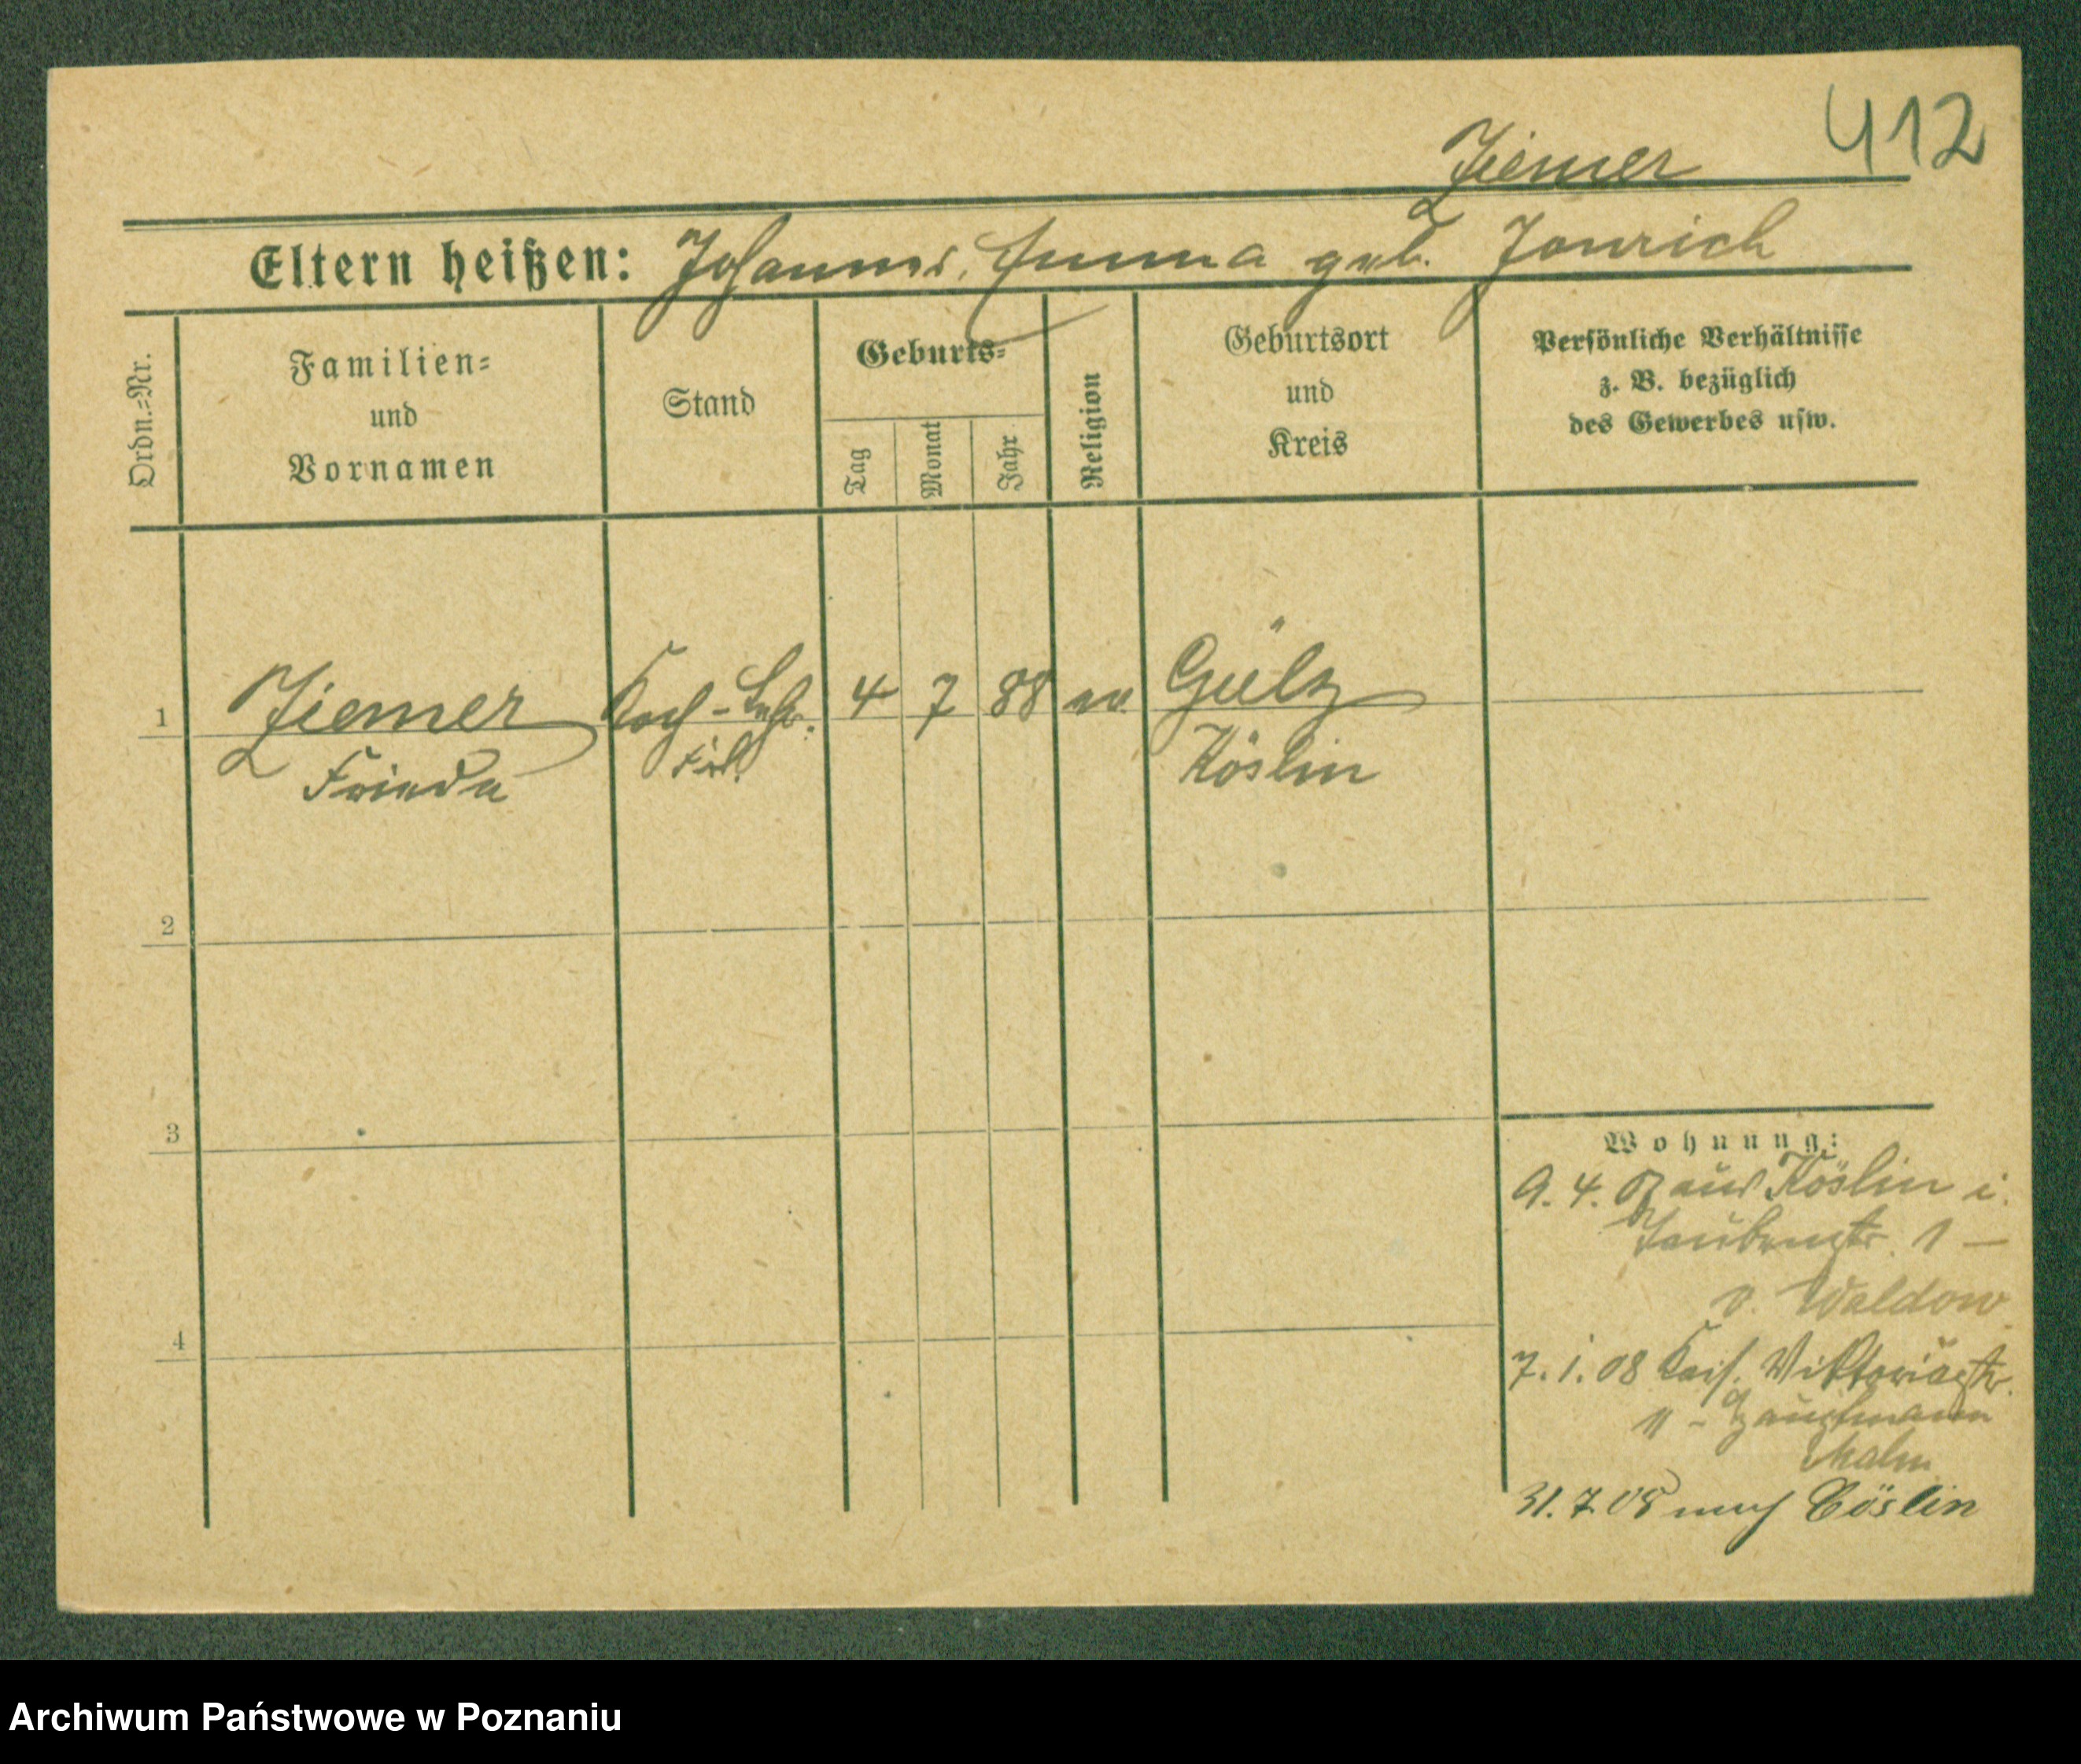 412
Ziemer
Eltern heißen: Johannes, Emma geb. Jonrich
Ordn.=Nr.
Familien=
und
Vornamen
Stand
Geburts=
Tag
Monat
Jahr
Religion
Geburtsort
und
Kreis
Persönliche Verhältnisse
z. B. bezüglich
des Gewerbes usw.
1 Ziemer Koch-Lehr. 4 7 88 ev. Gülz
Frieda Frl. Köslin
2
3
4
Wohnung:
9. 4. 07 aus Köslin i.
Taubenstr. 1 —
v. Waldow
7. 1. 08 Kais. Viktoriastr.
11 - Hauptmann
31. 7. 08 nach Cöslin
Archiwum Państwowe w Poznaniu